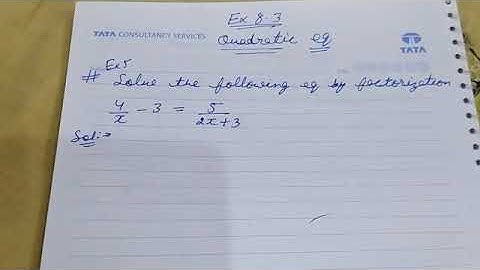 Ex 8.3
TATA CONSULTANCY SERVICES
Quadratic eq
TATA
Ex5
# Solve the following eq by factorization
4/x - 3 = 5/2x+3
Sol:→